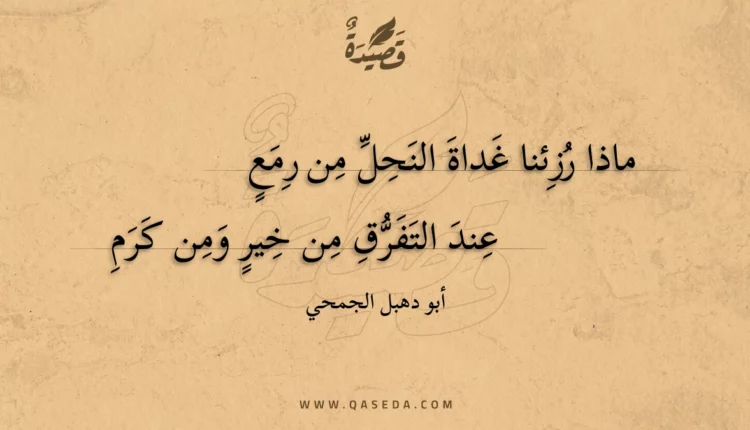 قَصِيدَةٌ
ماذا رُزِئنا غَداةَ النَحِلِّ مِن رِمَعٍ
عِندَ التَفَرُّقِ مِن خِيرٍ وَمِن كَرَمِ
أبو دهبل الجمحي
WWW.QASEDA.COM